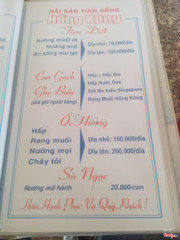 HẢI SẢN TƯƠI SỐNG
Hồng Kông
Tôm Đất
Nướng muối ớt
Nướng mọi
Ăn sống mù tạt
Dĩa nhỏ: 70.000/dĩa
Dĩa lớn: 100.000/dĩa
Cua Gạch
Ghẹ Biển
(Giá ghi ngoài bảng)
Hấp + Hấp Bia
Rang Me
Sốt Me Kiểu Singapore
Rang Muối Hồng Kông
Ốc Hương
Hấp
Rang muối
Nướng mọi
Cháy tỏi
Dĩa nhỏ: 150.000/dĩa
Dĩa lớn: 200.000/dĩa
Sò Ngọc
Nướng mỡ hành : 25.000/con
Hân Hạnh Phục Vụ Quý Khách!